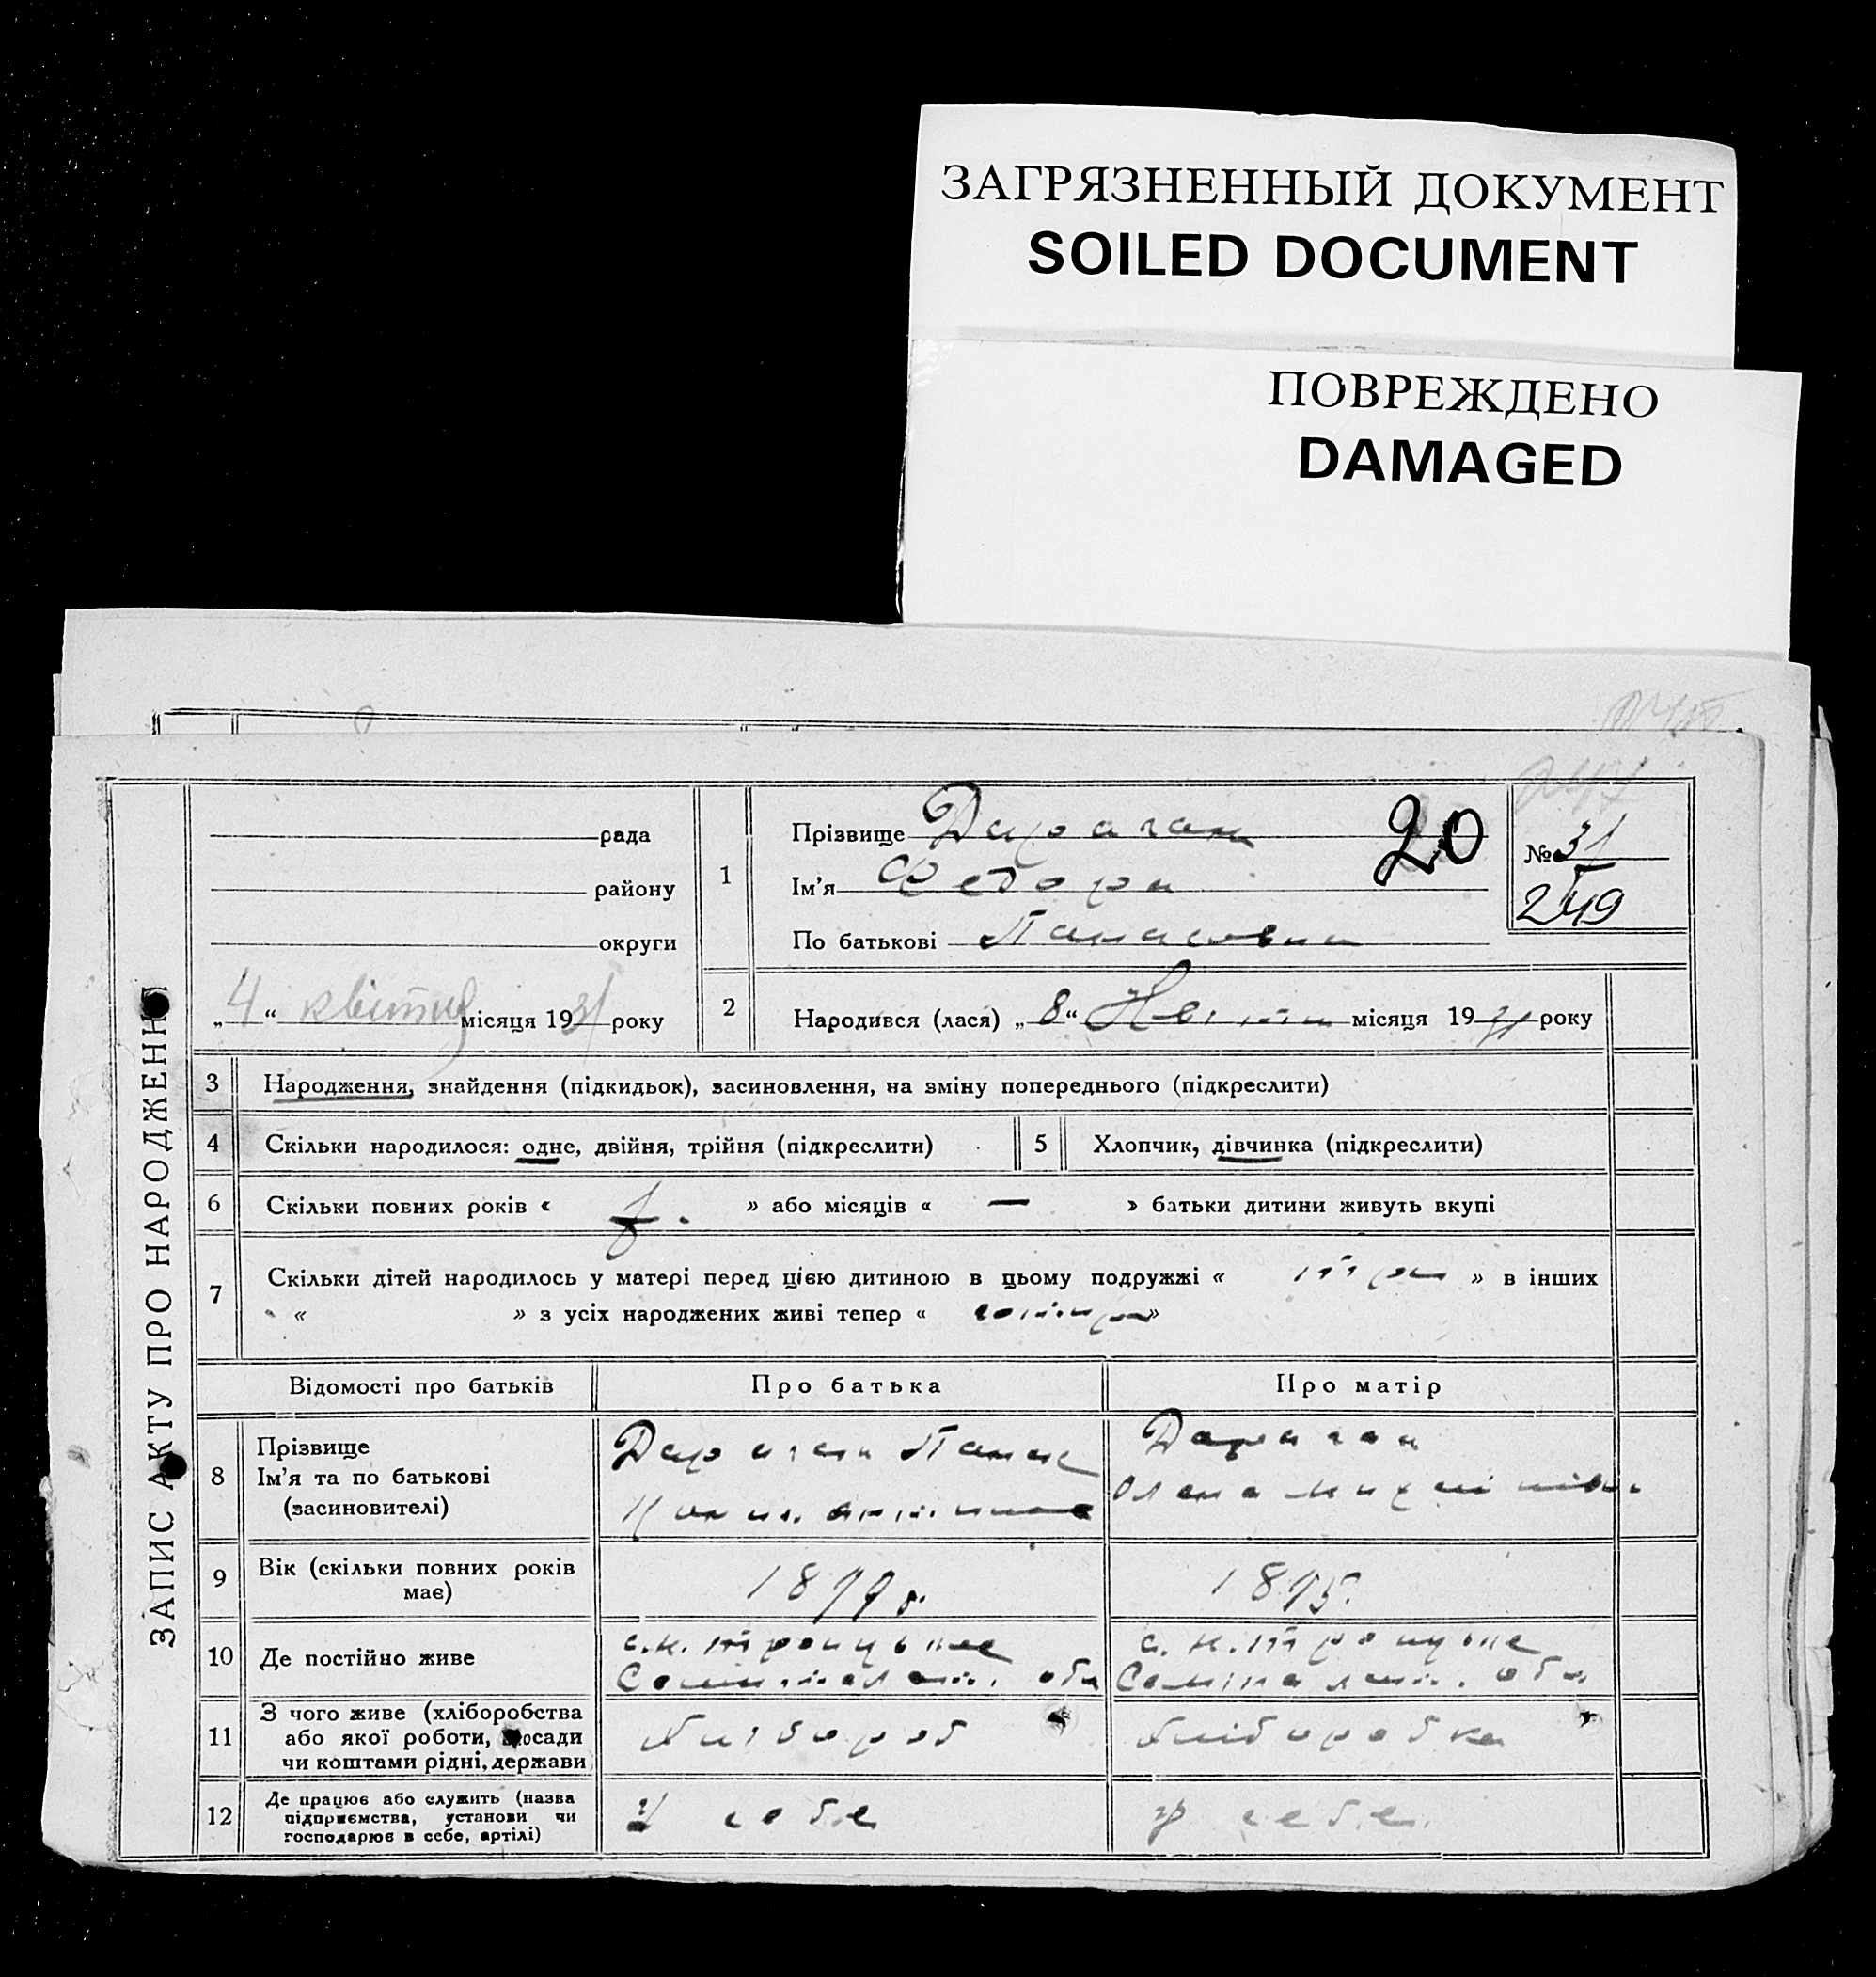 ЗАГРЯЗНЕННЫЙ ДОКУМЕНТ
SOILED DOCUMENT
ПОВРЕЖДЕНО
DAMAGED
ЗАПИС АКТУ ПРО НАРОДЖЕННЯ
рада
району
округи
„4“ квітня місяця 1931 року
1 Прізвище Дараган 20
Ім'я Федора
По батькові Панасовна
№ 31
249
2 Народився (лася) „8“ місяця 1931 року
3 Народження, знайдення (підкидьок), засиновлення, на зміну попереднього (підкреслити)
4 Скільки народилося: одне, двійня, трійня (підкреслити)
5 Хлопчик, дівчинка (підкреслити)
6 Скільки повних років « » або місяців « — » батьки дитини живуть вкупі
7 Скільки дітей народилось у матері перед цією дитиною в цьому подружжі « три » в інших
« » з усіх народжених живі тепер « »
Відомості про батьків Про батька Про матір
8 Прізвище
Ім'я та по батькові
(засиновителі)
Дараган Панас
Дараган
Олена
9 Вік (скільки повних років
має)
1899 р.
1895.
10 Де постійно живе
11 З чого живе (хліборобства
або якої роботи, посади
чи коштами рідні, держави
Хлібороб
Хліборобка
12 Де працює або служить (назва
підприємства, установи чи
господарює в себе, артілі)
У себе
У себе.